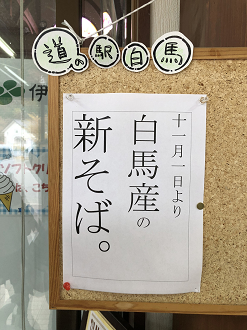 道の駅白馬
十一月一日より
白馬産の
新そば。
伊
ソフトクリ